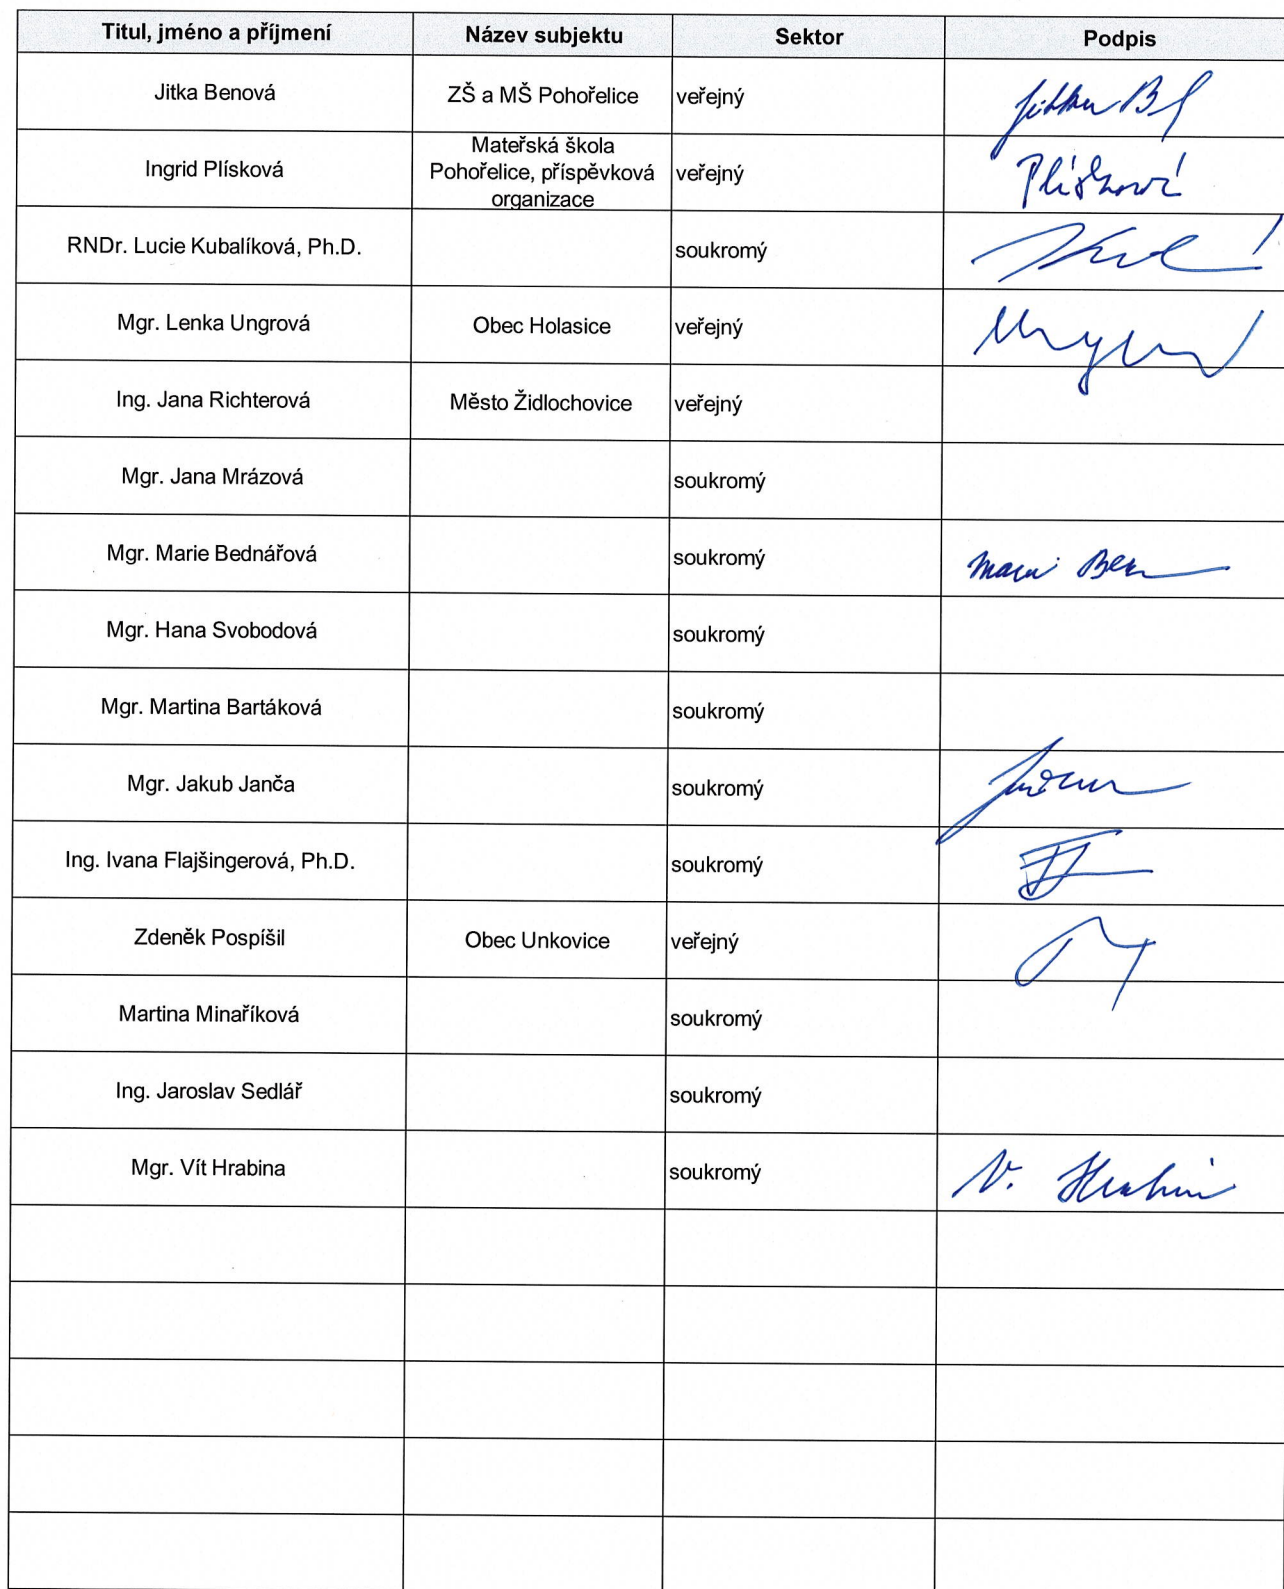 Titul, jméno a příjmení Název subjektu Sektor Podpis
Jitka Benová ZŠ a MŠ Pohořelice veřejný Jitka
Ingrid Plísková Mateřská škola Pohořelice, příspěvková organizace veřejný Plísková
RNDr. Lucie Kubalíková, Ph.D. soukromý
Mgr. Lenka Ungrová Obec Holasice veřejný
Ing. Jana Richterová Město Židlochovice veřejný
Mgr. Jana Mrázová soukromý
Mgr. Marie Bednářová soukromý
Mgr. Hana Svobodová soukromý
Mgr. Martina Bartáková soukromý
Mgr. Jakub Janča soukromý
Ing. Ivana Flajšingerová, Ph.D. soukromý
Zdeněk Pospíšil Obec Unkovice veřejný
Martina Minaříková soukromý
Ing. Jaroslav Sedlář soukromý
Mgr. Vít Hrabina soukromý V.